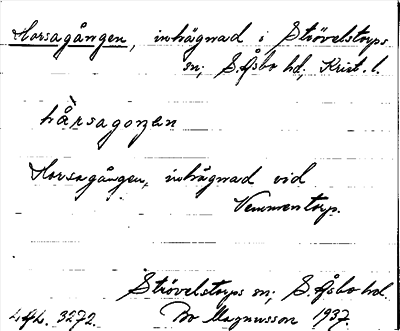 Horsagången, inhägnad i Strövelstorps
sn; S. Åsbo hd, Krist. l.
hårsagoŋen
Horsagången, inhägnad vid
Vemmentorp.
Strövelstorps sn; S. Åsbo hd.
3272. Bo Magnusson 1937